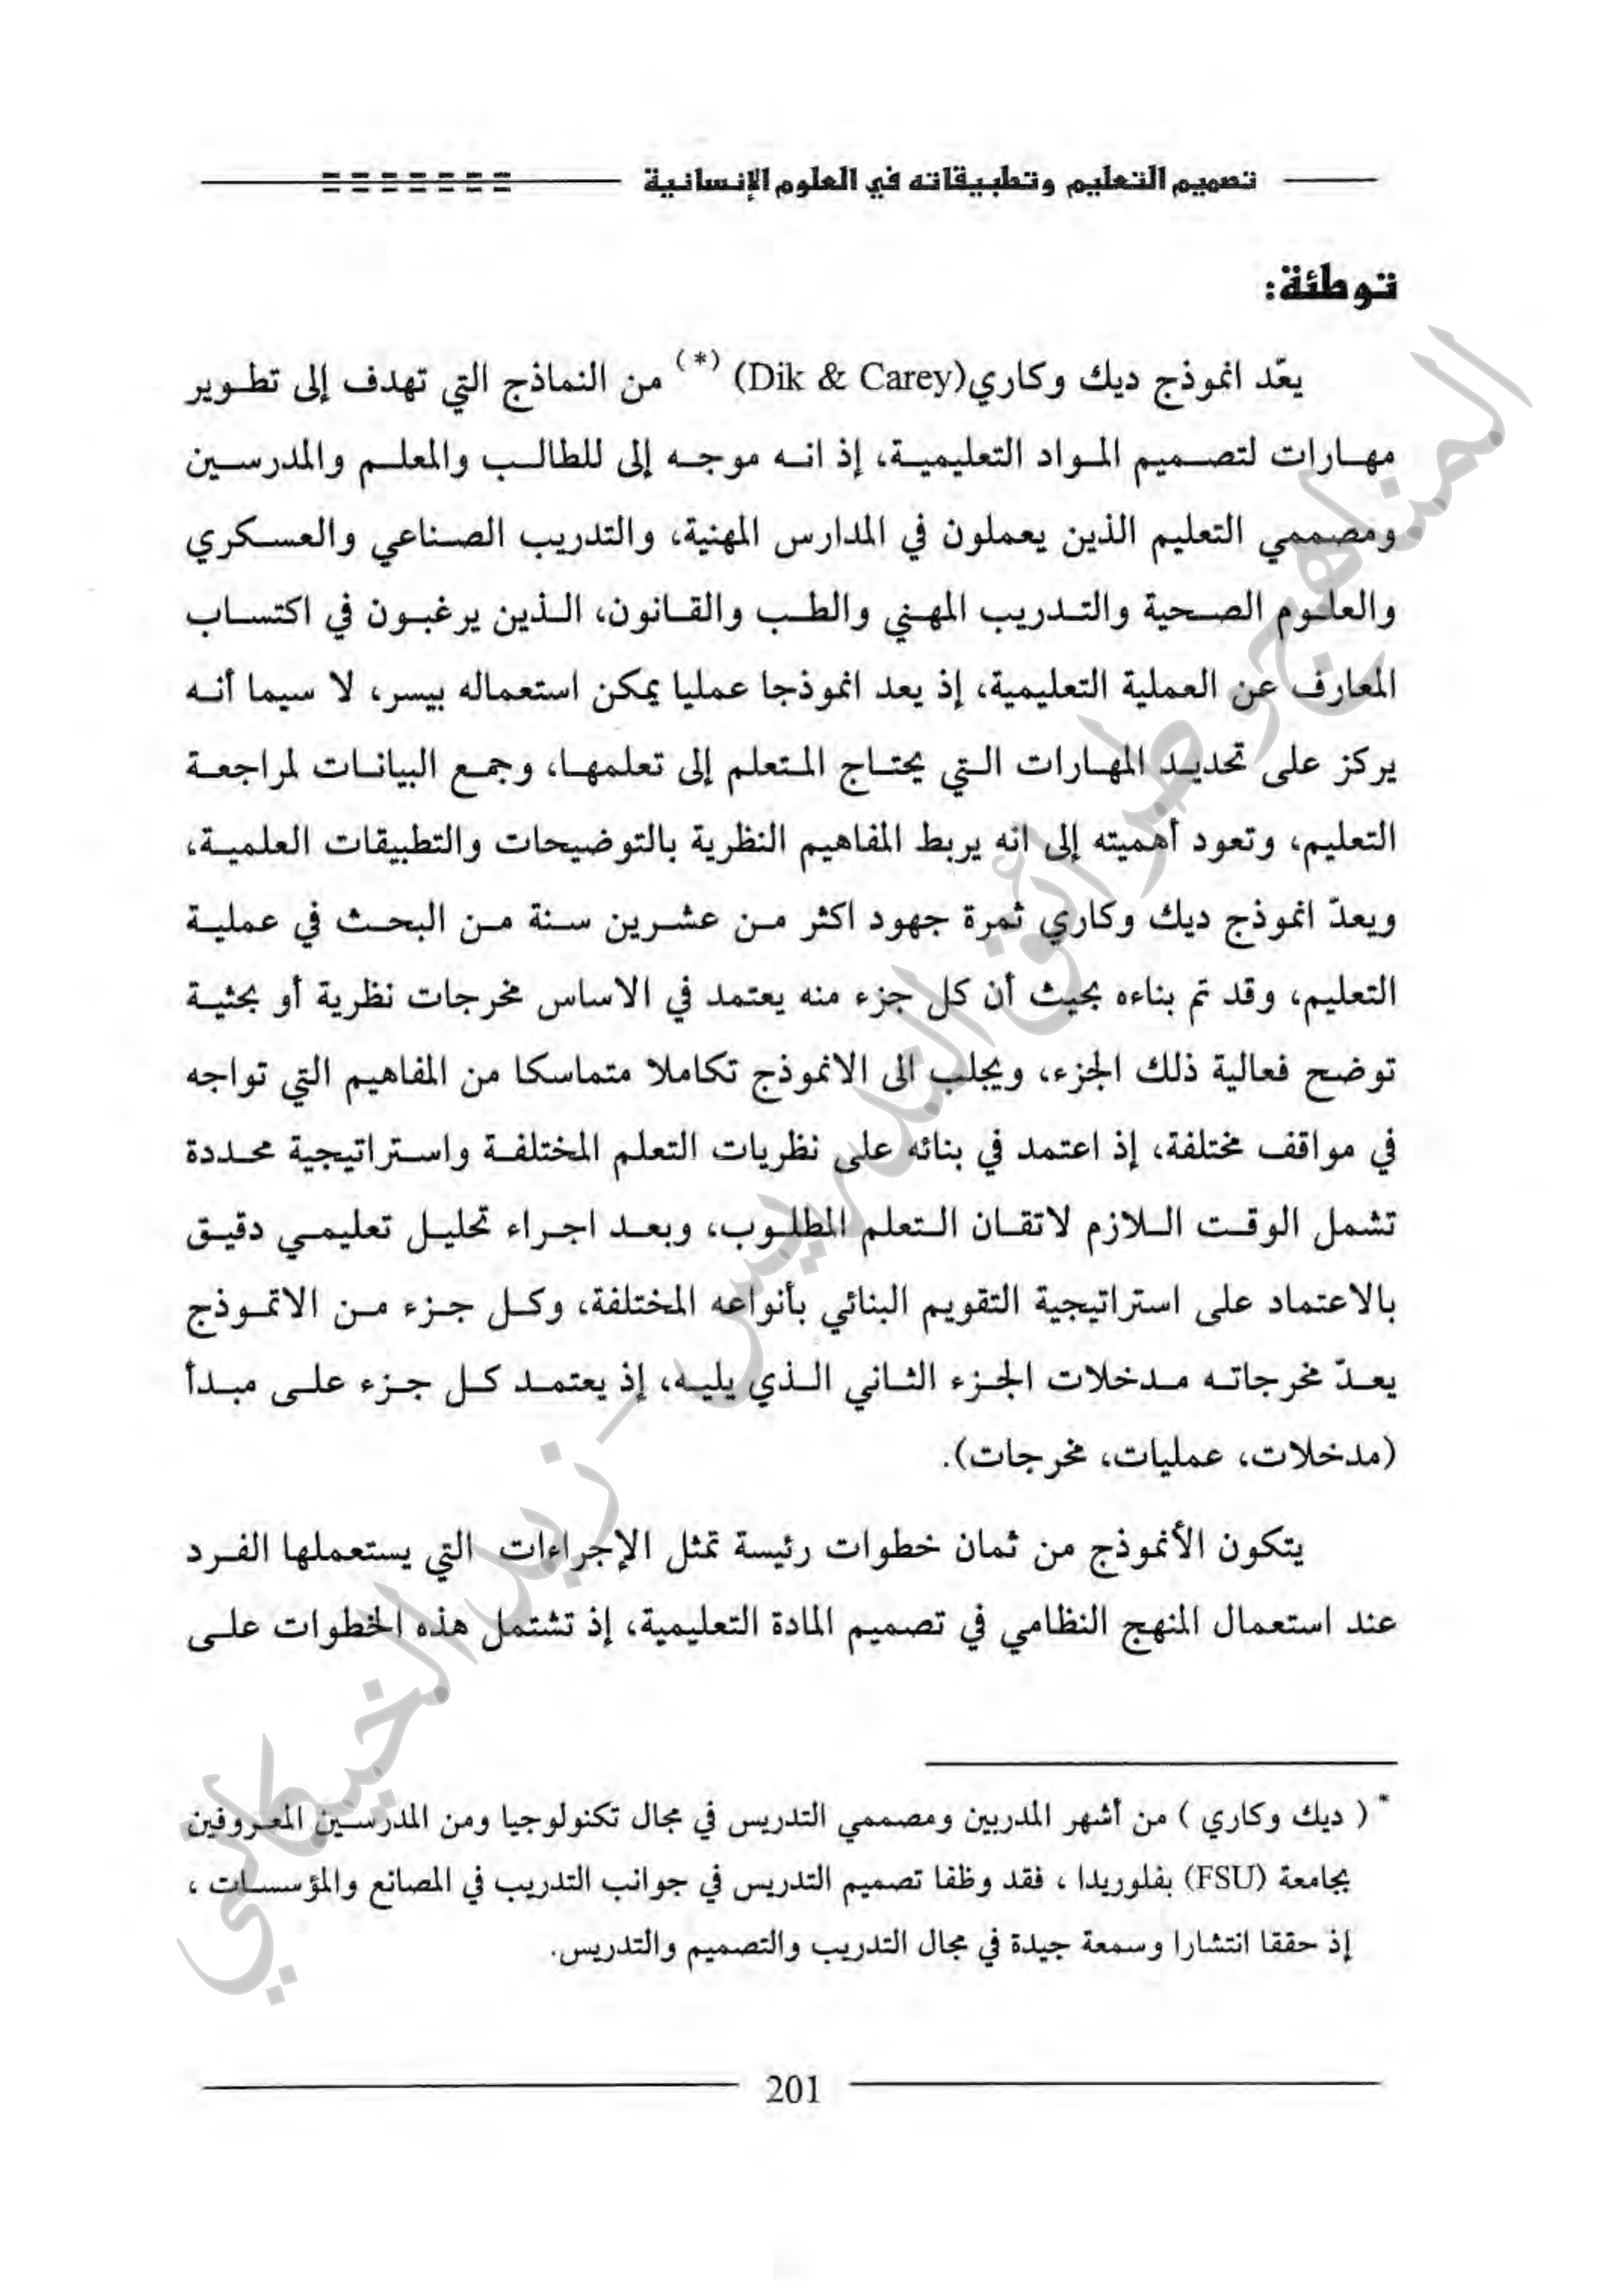 تصميم التعليم وتطبيقاته في العلوم الإنسانية
توطئة:
يعّد انموذج ديك وكاري(Dik & Carey) (*) من النماذج التي تهدف إلى تطوير
مهارات لتصميم المواد التعليمية، إذ انه موجه إلى للطالب والمعلم والمدرسين
ومصممي التعليم الذين يعملون في المدارس المهنية، والتدريب الصناعي والعسكري
والعلوم الصحية والتدريب المهني والطب والقانون، الذين يرغبون في اكتساب
المعارف عن العملية التعليمية، إذ يعد انموذجا عمليا يمكن استعماله بيسر، لا سيما أنه
يركز على تحديد المهارات التي يحتاج المتعلم إلى تعلمها، وجمع البيانات لمراجعة
التعليم، وتعود أهميته إلى انه يربط المفاهيم النظرية بالتوضيحات والتطبيقات العلمية،
ويعدّ انموذج ديك وكاري ثمرة جهود اكثر من عشرين سنة من البحث في عملية
التعليم، وقد تم بناءه بحيث أن كل جزء منه يعتمد في الاساس مخرجات نظرية أو بحثية
توضح فعالية ذلك الجزء، ويجلب الى الانموذج تكاملا متماسكا من المفاهيم التي تواجه
في مواقف مختلفة، إذ اعتمد في بنائه على نظريات التعلم المختلفة واستراتيجية محددة
تشمل الوقت اللازم لاتقان التعلم المطلوب، وبعد اجراء تحليل تعليمي دقيق
بالاعتماد على استراتيجية التقويم البنائي بأنواعه المختلفة، وكل جزء من الانموذج
يعدّ مخرجاته مدخلات الجزء الثاني الذي يليه، إذ يعتمد كل جزء على مبدأ
(مدخلات، عمليات، مخرجات).
يتكون الأنموذج من ثمان خطوات رئيسة تمثل الإجراءات التي يستعملها الفرد
عند استعمال المنهج النظامي في تصميم المادة التعليمية، إذ تشتمل هذه الخطوات على
* ( ديك وكاري ) من أشهر المدربين ومصممي التدريس في مجال تكنولوجيا ومن المدرسين المعروفين
بجامعة (FSU) بفلوريدا ، فقد وظفا تصميم التدريس في جوانب التدريب في المصانع والمؤسسات ،
إذ حققا انتشارا وسمعة جيدة في مجال التدريب والتصميم والتدريس.
201
المناهج وطرائق التدريس - زيد الخيكاني